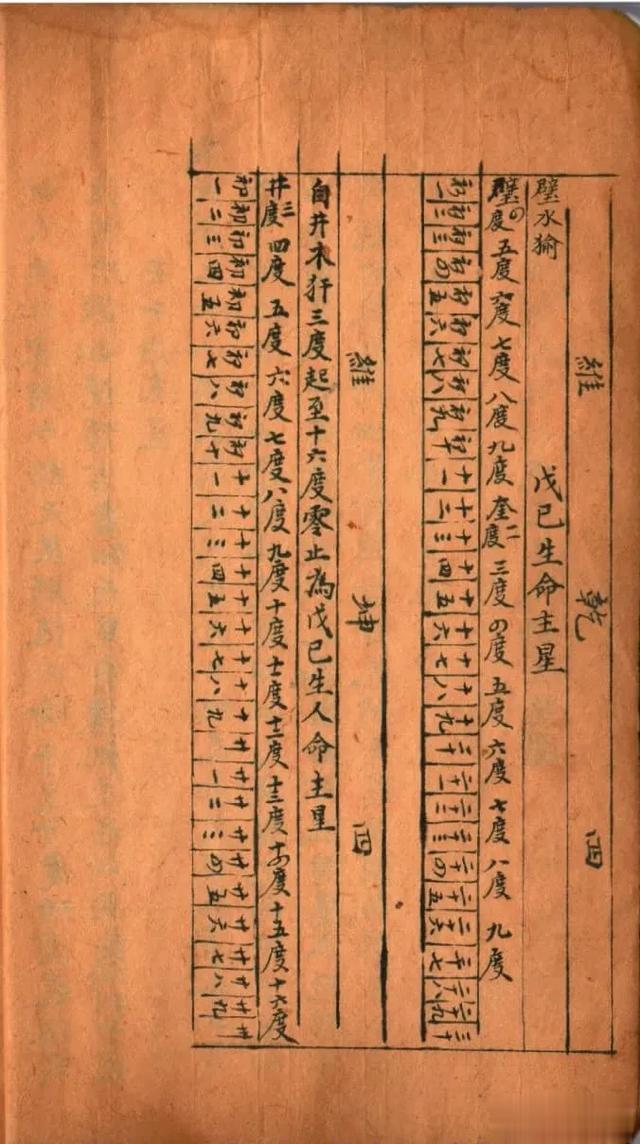 維 乾 四
璧水㺄 戊己生命主星
璧の度 五度 六度 七度 八度 九度 奎二度 三度 の度 五度 六度 七度 八度 九度
初一 初二 初三 初の 初五 初六 初七 初八 初九 初十 十一 十二 十三 十四 十五 十六 十七 十八 十九 二十 二十一 二十二 二十三 二十の 二十五 二十六 二十七 二十八 二十九 三十
維 坤 四
自井木犴三度起至十六度零止為戊己生人命主星
井三度 四度 五度 六度 七度 八度 九度 十度 十一度 十二度 十三度 十の度 十五度 十六度
初一 初二 初三 初四 初五 初六 初七 初八 初九 初十 十一 十二 十三 十四 十五 十六 十七 十八 十九 廿 廿一 廿二 廿三 廿の 廿五 廿六 廿七 廿八 廿九 卅